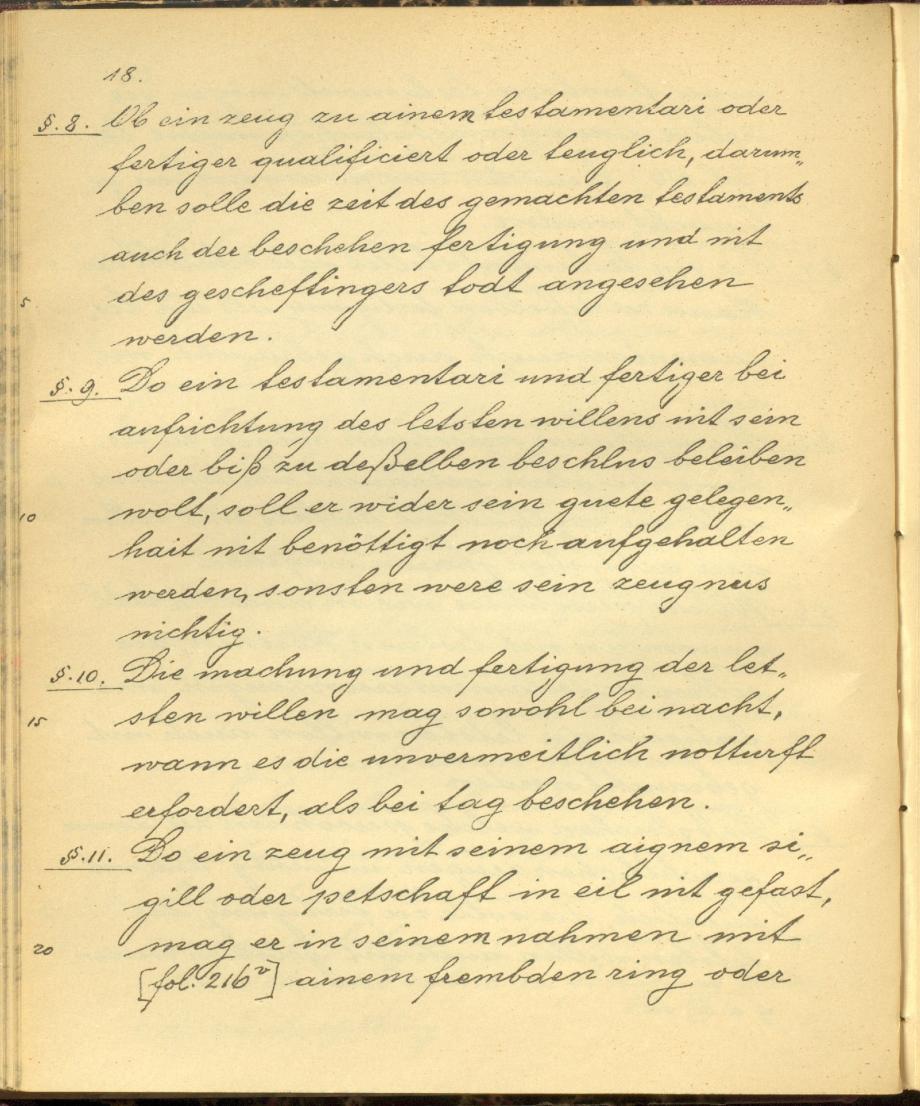 18.
§. 8. Ob ein zeug zu ainem testamentari oder
fertiger qualificiert oder teuglich, darum„
ben solle die zeit des gemachten testaments
auch der beschehen fertigung und nit
5 des gescheftingers todt angesehen
werden.
§. 9. Do ein testamentari und fertiger bei
aufrichtung des letsten willens nit sein
oder biß zu deßelben beschlus beleiben
10 wolt, soll er wider sein guete gelegen„
hait nit benöttigt noch aufgehalten
werden, sonsten were sein zeugnus
nichtig.
§. 10. Die machung und fertigung der let„
15 sten willen mag sowohl bei nacht,
wann es die unvermeitlich notturft
erfordert, als bei tag beschehen.
§. 11. Do ein zeug mit seinem aignem si„
gill oder petschaft in eil nit gefast,
20 mag er in seinem nahmen mit
[fol. 216v] ainem frembden ring oder